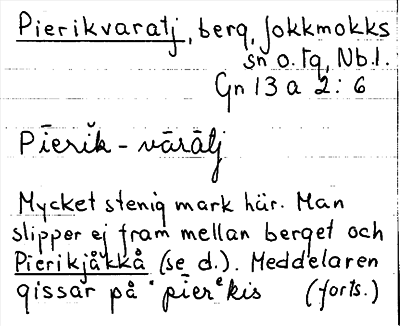 Pierikvaratj, berg, Jokkmokks
sn o. tg, Nb.l.
Gn 13 a 2:6
Pīerik̆ - vārātj
Mycket stenig mark här. Man
slipper ej fram mellan berget och
Pierikjåkkå (se d.). Meddelaren
gissar på "pīerᵉkis (forts.)